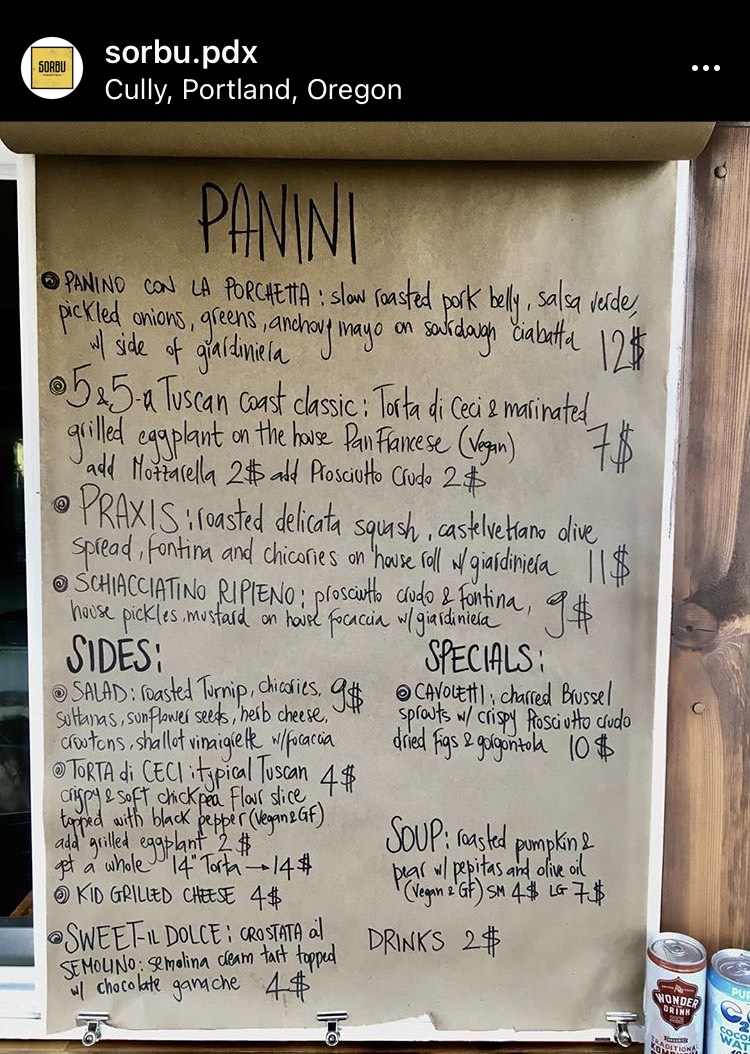 SORBU
sorbu.pdx
Cully, Portland, Oregon
PANINI
PANINO CON LA PORCHETTA : slow roasted pork belly, salsa verde,
pickled onions, greens, anchovy mayo on sourdough ciabatta
w/ side of giardiniera 12$
5&5-a Tuscan coast classic: Torta di Ceci & marinated
grilled eggplant on the house Pan Francese (Vegan) 7$
add Mozzarella 2$ add Prosciutto Crudo 2$
PRAXIS: roasted delicata squash, castelvetrano olive
spread, fontina and chicories on house roll w/ giardiniera 11$
SCHIACCIATINO RIPIENO: prosciutto crudo & fontina,
house pickles, mustard on house focaccia w/ giardiniera 9$
SIDES:
SALAD: roasted Turnip, chicories, 9$
sultanas, sunflower seeds, herb cheese,
croutons, shallot vinaigrette w/ focaccia
TORTA di CECI: typical Tuscan 4$
crispy & soft chickpea flour slice
topped with black pepper (Vegan&GF)
add grilled eggplant 2$
get a whole 14" Torta → 14$
KID GRILLED CHEESE 4$
SWEET-IL DOLCE: CROSTATA al
SEMOLINO: semolina cream tart topped
w/ chocolate ganache 4$
SPECIALS:
CAVOLETTI: charred Brussel
sprouts w/ crispy Prosciutto crudo
dried figs & gorgontola 10$
SOUP: roasted pumpkin &
pear w/ pepitas and olive oil
(Vegan & GF) SM 4$ LG 7$
DRINKS 2$
WONDER
DRINK
TRADITIONAL
PUR
C2
COCO
WAT